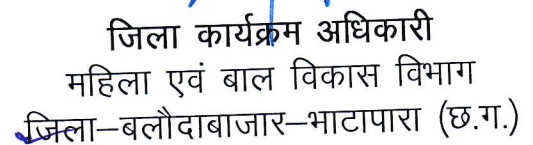 जिला कार्यक्रम अधिकारी
महिला एवं बाल विकास विभाग
जिला–बलौदाबाजार–भाटापारा (छ.ग.)